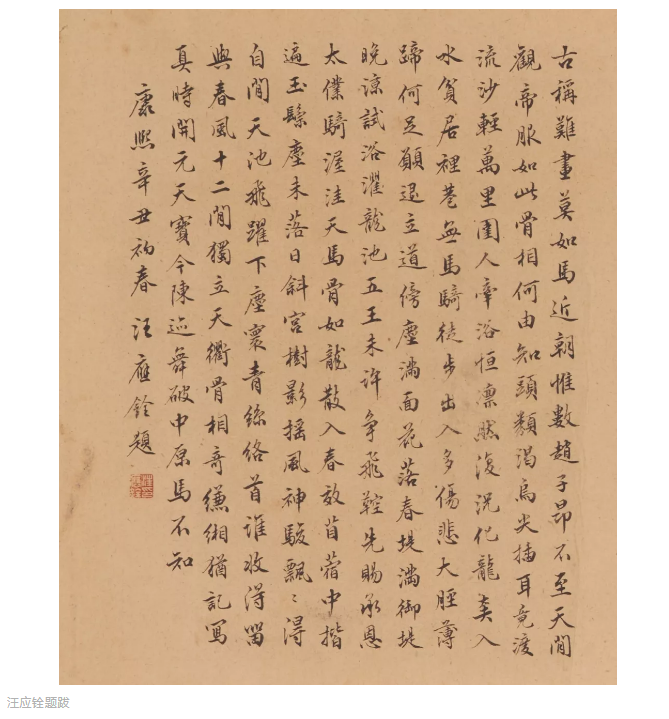 古稱難畫莫如馬近朝惟數趙子昂不至天閒
觀帝服如此骨相何由知頭顙渴烏尖插耳竟渡
流沙輕萬里圉人牽浴恒凛然復況化龍奔入
水貧居裡巷無馬騎徒步出入多傷悲大脛薄
蹄何足顧退立道傍塵滿面花落春堤滿御堤
晚涼試浴濯龍池五王未許爭飛鞚先賜承恩
太僕騎渥洼天馬骨如龍散入春放苜蓿中揩
遍玉鬃塵未落日斜宮樹影搖風神駿飄〻得
自閒天池飛躍下塵寰青絲絡首誰收得留
與春風十二閒獨立天衢骨相奇縑緗猶記寫
真時開元天寶今陳迹舞破中原馬不知
康熙辛丑初春汪應銓題
汪应铨题跋